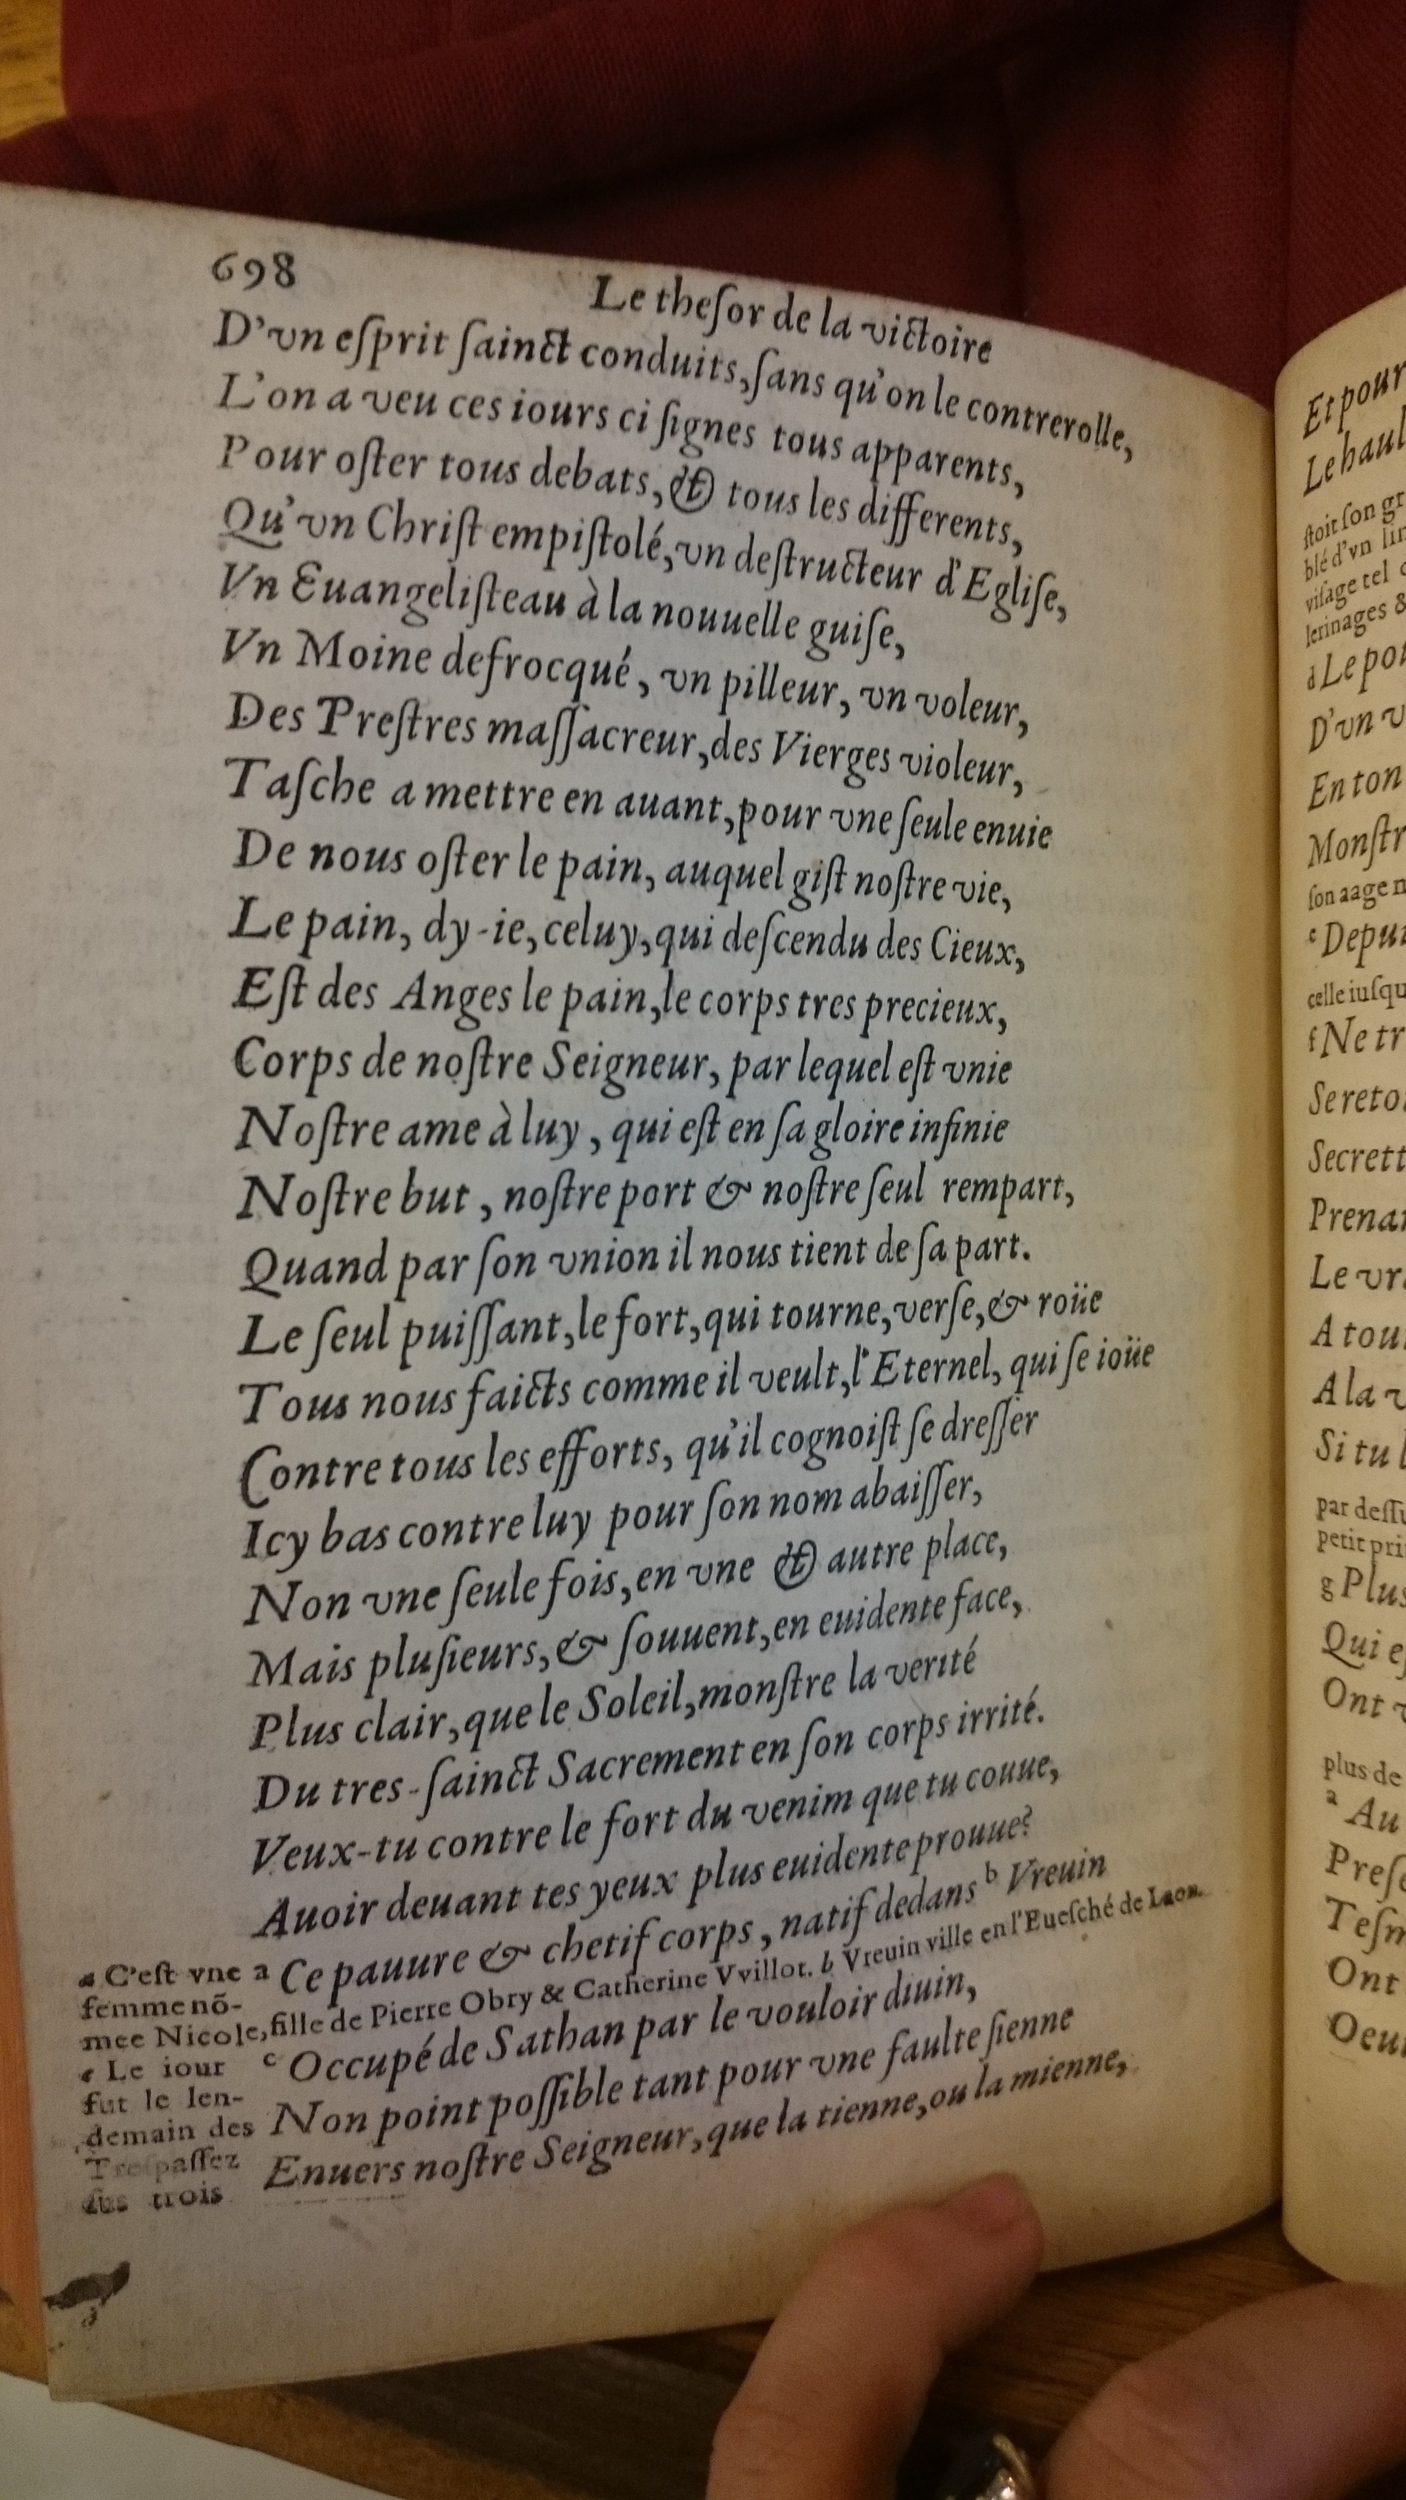 698
Le theſor de la victoire
D'vn eſprit ſainct conduits, ſans qu'on le contrerolle,
L'on a veu ces iours ci ſignes tous apparents,
Pour oſter tous debats, & tous les differents,
Qu'vn Chriſt empiſtolé, vn deſtructeur d'Egliſe,
Vn Euangeliſteau à la nouuelle guiſe,
Vn Moine defrocqué, vn pilleur, vn voleur,
Des Preſtres maſſacreur, des Vierges violeur,
Taſche a mettre en auant, pour vne ſeule enuie
De nous oſter le pain, auquel giſt noſtre vie,
Le pain, dy-ie, celuy, qui deſcendu des Cieux,
Eſt des Anges le pain, le corps tres precieux,
Corps de noſtre Seigneur, par lequel eſt vnie
Noſtre ame à luy, qui eſt en ſa gloire infinie
Noſtre but, noſtre port & noſtre ſeul rempart,
Quand par ſon vnion il nous tient de ſa part.
Le ſeul puiſſant, le fort, qui tourne, verſe, & roüe
Tous nous faicts comme il veult, l'Eternel, qui ſe ioüe
Contre tous les efforts, qu'il cognoiſt ſe dreſſer
Icy bas contre luy pour ſon nom abaiſſer,
Non vne ſeule fois, en vne & autre place,
Mais pluſieurs, & ſouuent, en euidente face,
Plus clair, que le Soleil, monſtre la verité
Du tres-ſainct Sacrement en ſon corps irrité.
Veux-tu contre le fort du venim que tu couue,
Auoir deuant tes yeux plus euidente prouue?
a Ce pauure & chetif corps, natif dedans b Vreuin
a C'eſt vne
femme nõ-
mee Nicole, fille de Pierre Obry & Catherine Vvillot. b Vreuin ville en l'Eueſché de Laon.
c Occupé de Sathan par le vouloir diuin,
c Le iour
fut le len-
demain des
Treſpaſſez
ſus trois
Non point poſſible tant pour vne faulte ſienne
Enuers noſtre Seigneur, que la tienne, ou la mienne,
Et pour
Le haul
ſtoit ſon gr
blé d'vn lin
viſage tel
lerinages &
d Le po
D'vn v
En ton
Monſtr
ſon aage
e Depui
celle iuſqu
f Ne tr
Se reto
Secrett
Prena
Le vr
A tou
A la v
Si tu l
par deſſu
petit pri
g Plus
Qui e
Ont
plus de
a Au
Preſ
Teſm
Ont
Oeu